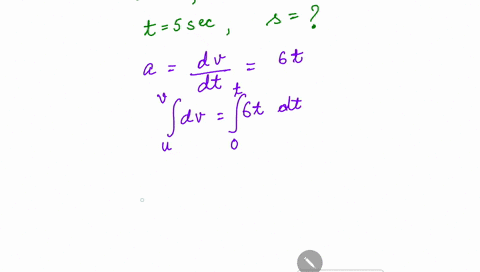 t = 5 sec , s = ?
a = dv/dt = 6t
∫_u^v dv = ∫_0^t 6t dt